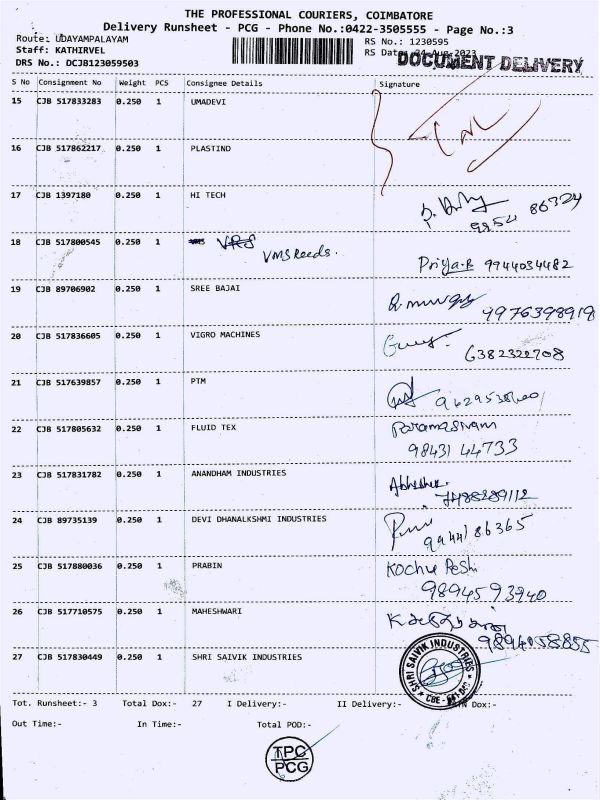 THE PROFESSIONAL COURIERS, COIMBATORE
Delivery Runsheet - PCG - Phone No.:0422-3505555 - Page No.:3
Route: UDAYAMPALAYAM
RS No.: 1230595
Staff: KATHIRVEL
RS Date: 24-Aug-2023
DRS No.: DCJB123059503
DOCUMENT DELIVERY
S No Consignment No Weight PCS Consignee Details Signature
15 CJB 517833283 0.250 1 UMADEVI
16 CJB 517862217 0.250 1 PLASTIND
17 CJB 1397180 0.250 1 HI TECH
86324
18 CJB 517800545 0.250 1 VRS
VMS Reeds.
Priya.R 9944034482
19 CJB 89706902 0.250 1 SREE BAJAI
9976398918
20 CJB 517836605 0.250 1 VIGRO MACHINES
6382322708
21 CJB 517639857 0.250 1 PTM
22 CJB 517805632 0.250 1 FLUID TEX Paramasivam
98431 44733
23 CJB 517831782 0.250 1 ANANDHAM INDUSTRIES
7488289112
24 CJB 89735139 0.250 1 DEVI DHANALKSHMI INDUSTRIES
99441 86365
25 CJB 517880036 0.250 1 PRABIN Kochu
98945 93940
26 CJB 517710575 0.250 1 MAHESHWARI
9894058855
27 CJB 517830449 0.250 1 SHRI SAIVIK INDUSTRIES
SHRI SAIVIK INDUSTRIES
Tot. Runsheet:- 3 Total Dox:- 27 I Delivery:- II Delivery:- Dox:-
Out Time:- In Time:- Total POD:-
TPC
PCG